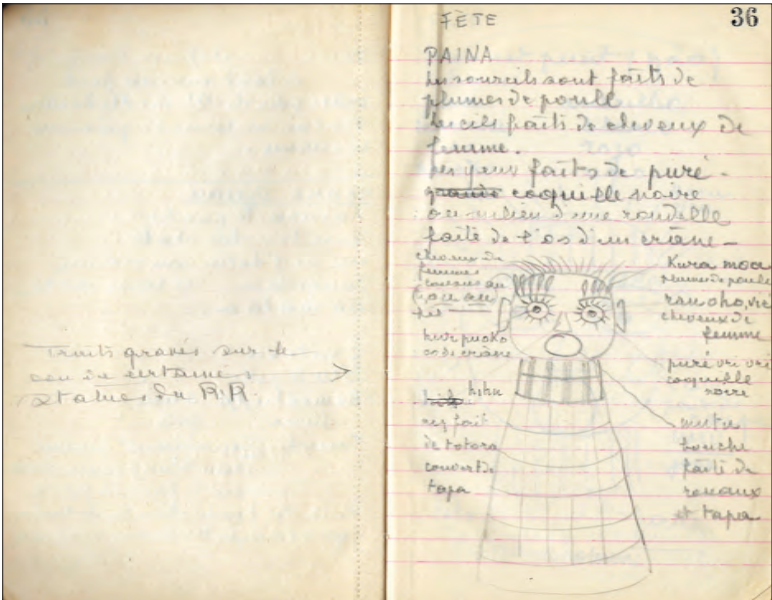 Traits gravés sur le
cou de certaines
statues du R.R
FÈTE
36
PAINA
Les sourcils sont faits de
plumes de poule
Les cils faits de cheveux de
femme.
Les yeux faits de puré -
coquille noire
au milieu d'une rondelle
faite de l'os d'un crâne -
cheveux de
femmes
hivi puoko
os de crâne
hihi
fait
de totora
couvert de
tapa
Kura moa
plumes de poule
rauoho, vie
cheveux de
femme
puré uri uri
coquille
noire
mutu
bouche
faite de
roseaux
et tapa